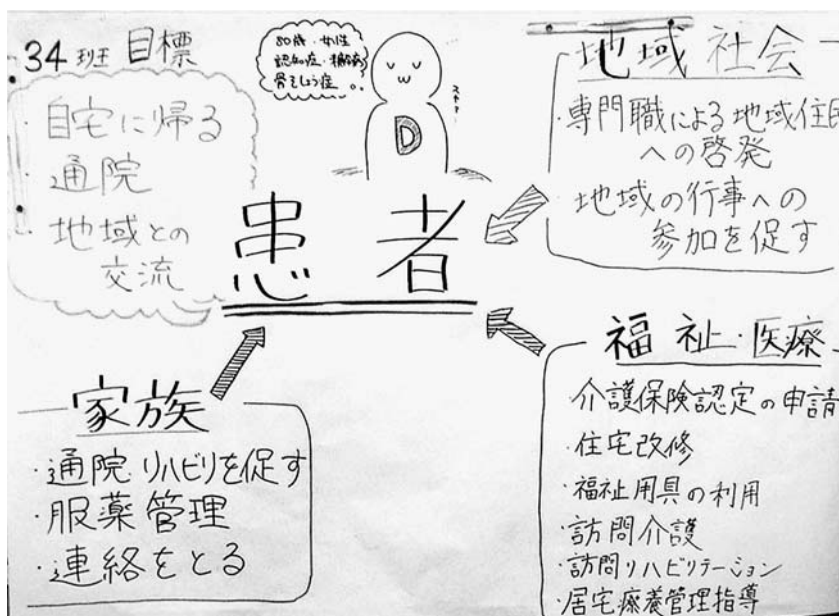 34班 目標
・自宅に帰る
・通院
・地域との
交流
80歳・女性
認知症・糖尿病
骨そしょう症
D
患者
地域社会
・専門職による地域住民
への啓発
・地域の行事への
参加を促す
家族
・通院 リハビリを促す
・服薬管理
・連絡をとる
福祉・医療
・介護保険認定の申請
・住宅改修
・福祉用具の利用
・訪問介護
・訪問リハビリテーション
・居宅療養管理指導